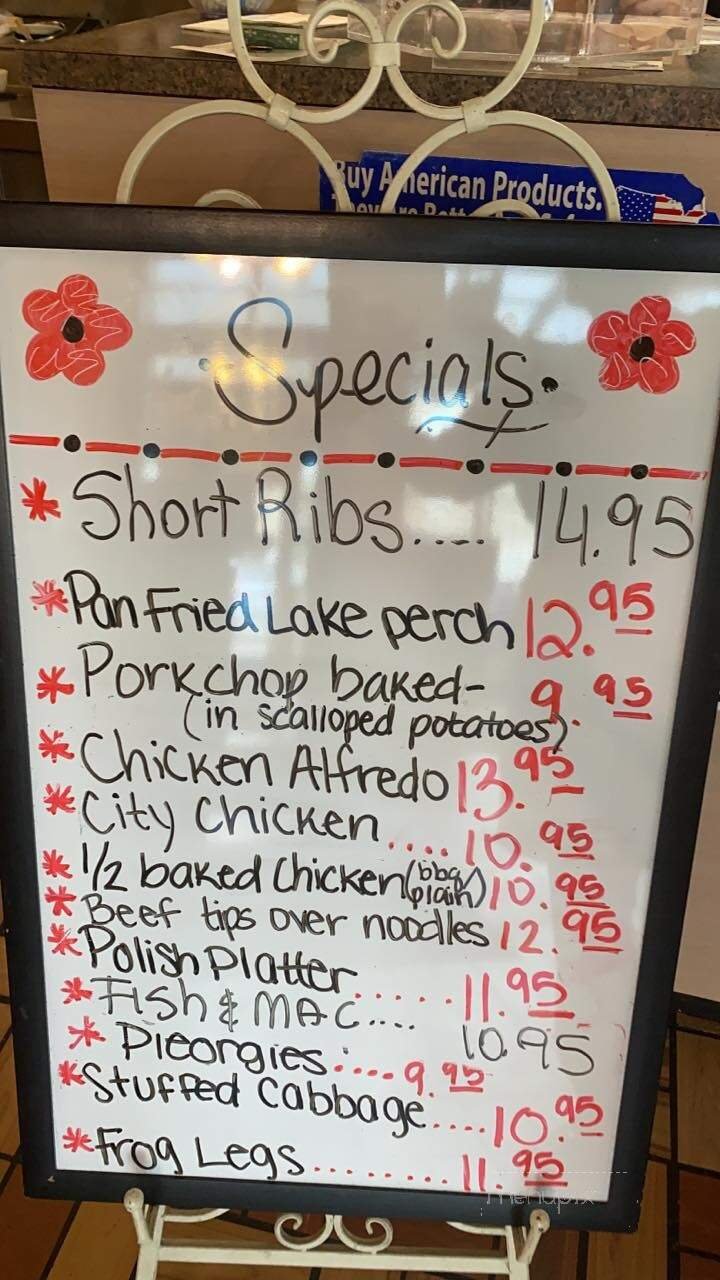 Buy American Products.
Specials.
* Short Ribs.... 14.95
* Pan Fried Lake perch 12.95
* Porkchop baked- 9.95
(in scalloped potatoes)
* Chicken Alfredo 13.95
* City Chicken.... 10.95
* 1/2 baked chicken (bbq plain) 10.95
* Beef tips over noodles 12.95
* Polish Platter...... 11.95
* Fish & MAC.... 10.95
* Pieorgies..... 9.95
* Stuffed Cabbage.... 10.95
* Frog Legs......... 11.95
menupix